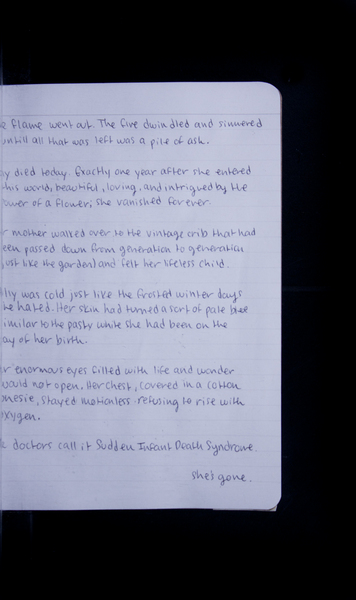 e flame went out. The fire dwindled and simmered
untill all that was left was a pile of ash.
y died today. Exactly one year after she entered
this world, beautiful, loving, and intrigued by the
ower of a flower; she vanished forever.
r mother walked over to the vintage crib that had
een passed down from generation to generation
just like the garden) and felt her lifeless child.
lly was cold just like the frosted winter days
he hated. Her skin had turned a sort of pale blue
imilar to the pasty white she had been on the
ay of her birth.
r enormous eyes filled with life and wonder
would not open. Her chest, covered in a cotton
onesie, stayed motionless refusing to rise with
oxygen.
e doctors call it Sudden Infant Death Syndrome.
she's gone.